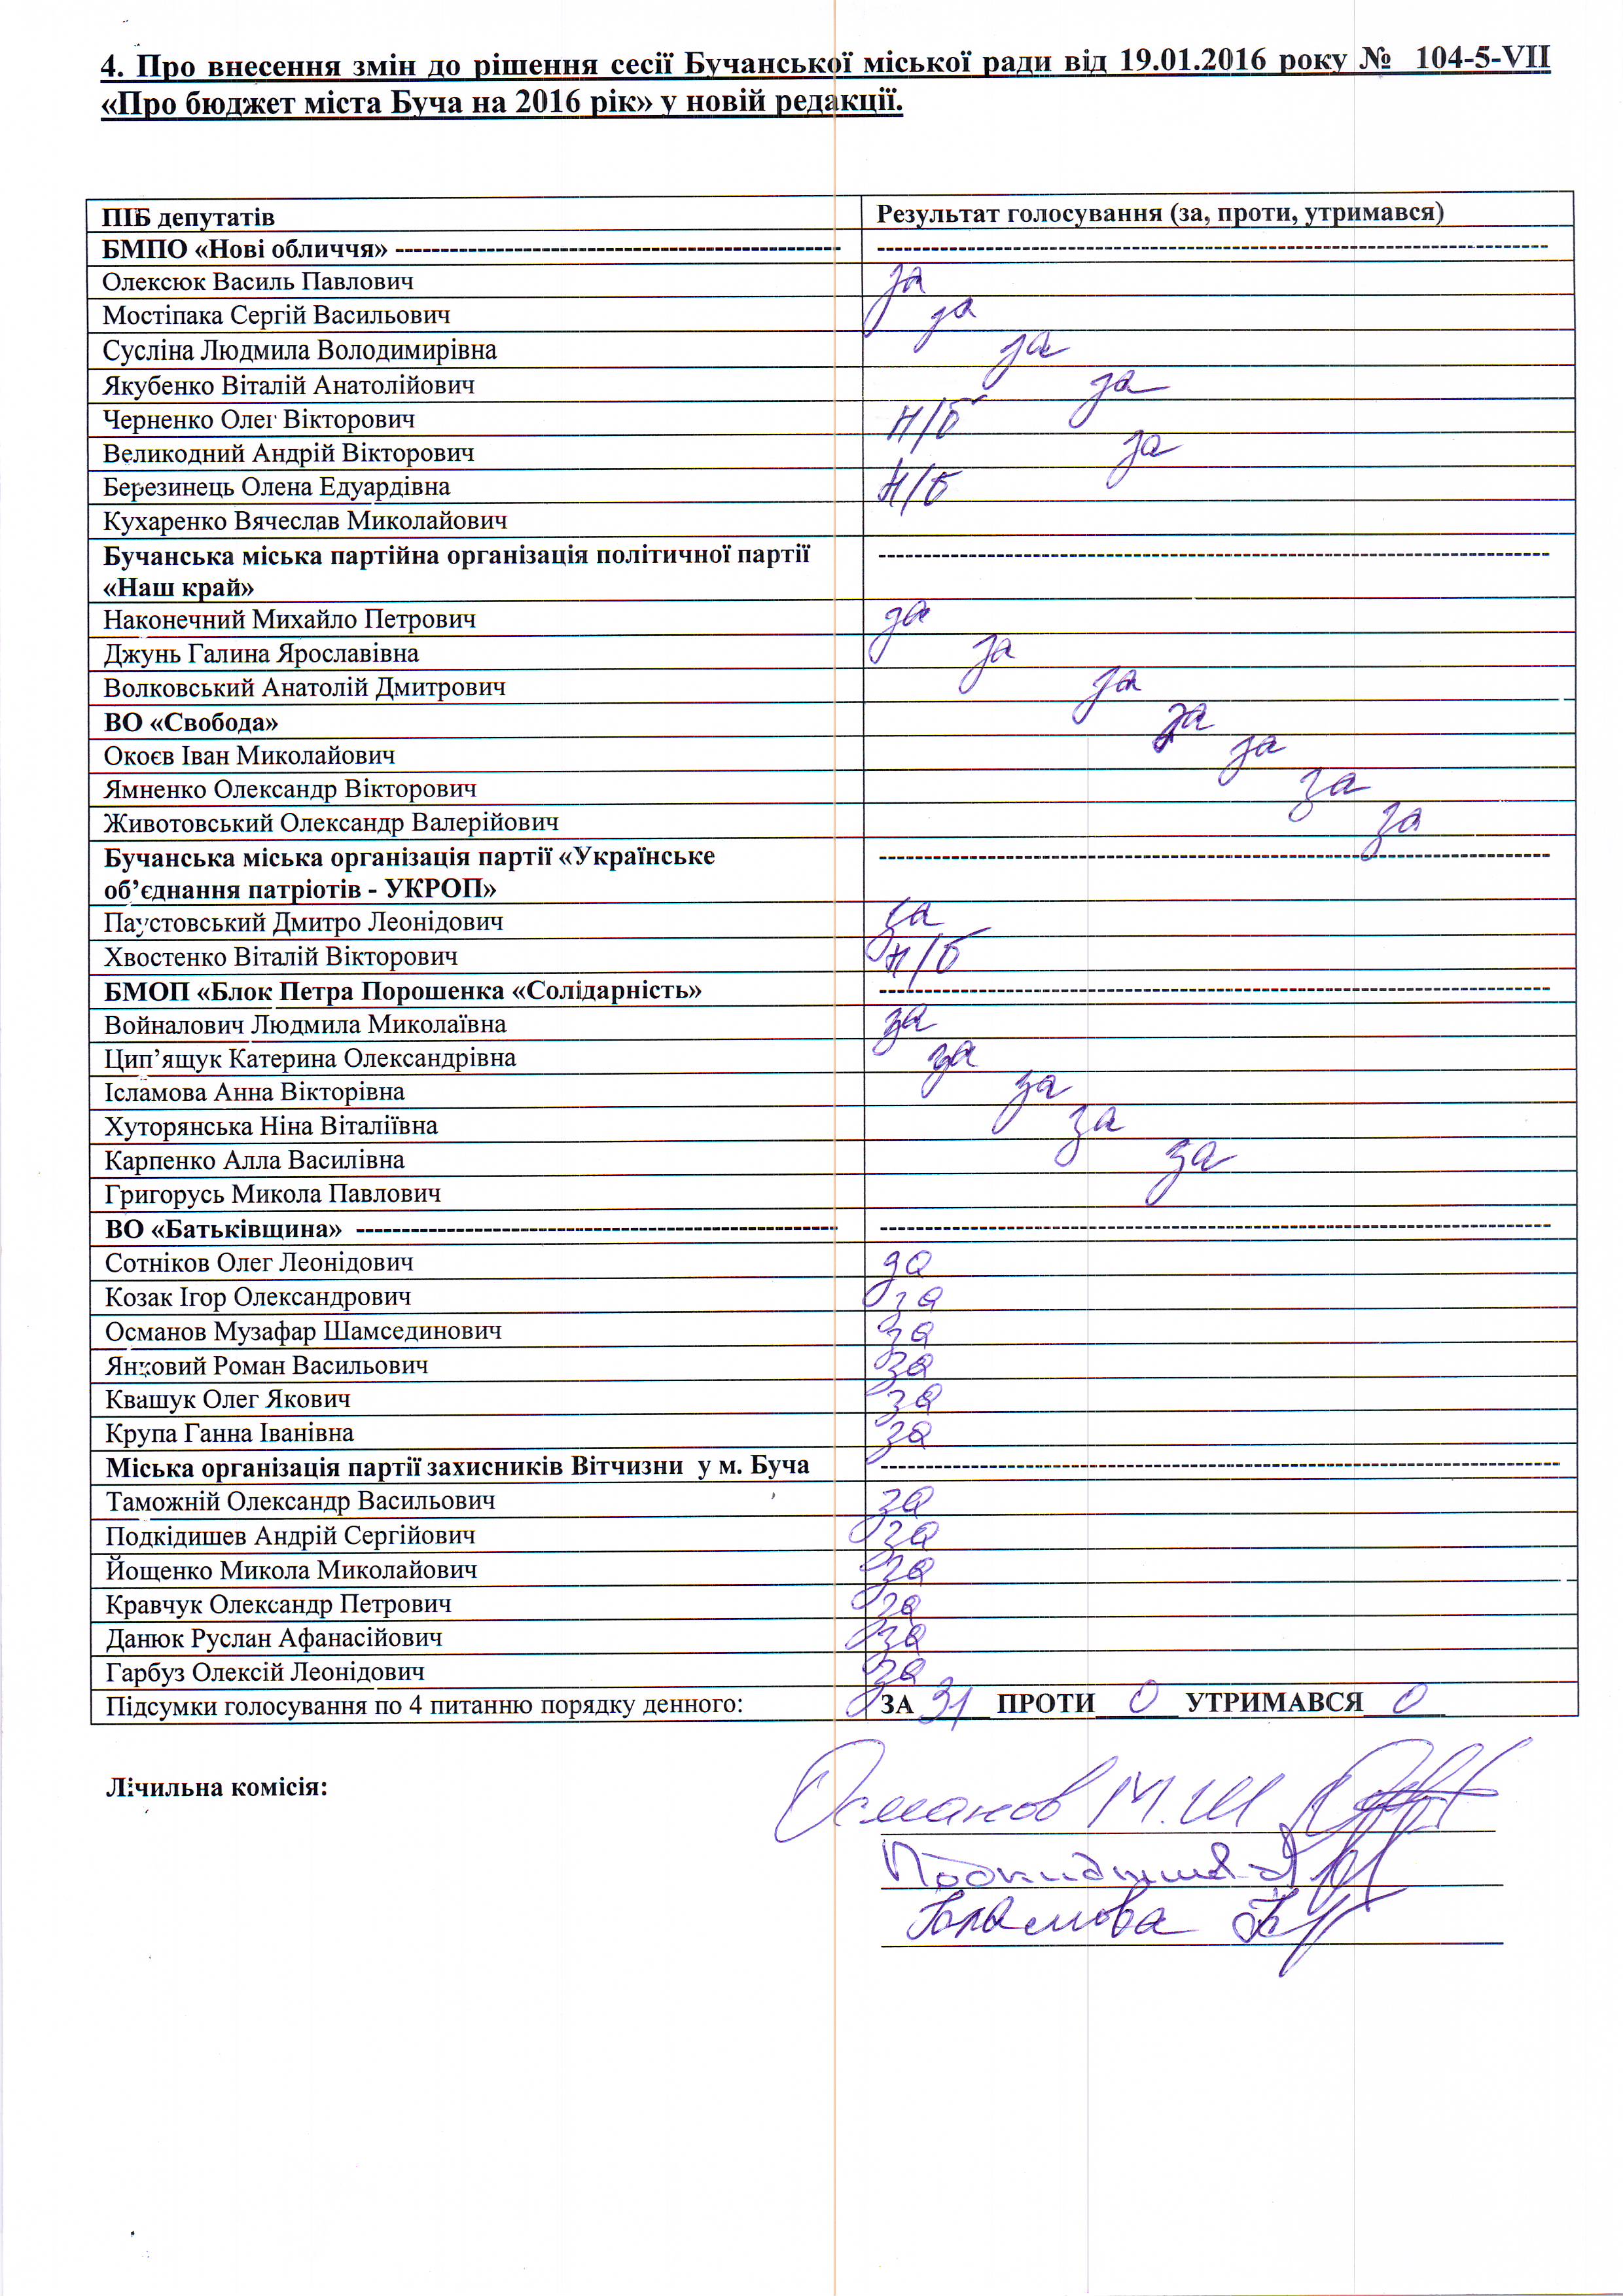 4. Про внесення змін до рішення сесії Бучанської міської ради від 19.01.2016 року № 104-5-VII
«Про бюджет міста Буча на 2016 рік» у новій редакції.
ПІБ депутатів Результат голосування (за, проти, утримався)
БМПО «Нові обличчя» ------------------------------------------------- --------------------------------------------------------------------------
Олексюк Василь Павлович за
Мостіпака Сергій Васильович за
Сусліна Людмила Володимирівна за
Якубенко Віталій Анатолійович за
Черненко Олег Вікторович н/б
Великодний Андрій Вікторович за
Березинець Олена Едуардівна н/б
Кухаренко Вячеслав Миколайович
Бучанська міська партійна організація політичної партії --------------------------------------------------------------------------
«Наш край»
Наконечний Михайло Петрович за
Джунь Галина Ярославівна за
Волковський Анатолій Дмитрович за
ВО «Свобода» за
Окоєв Іван Миколайович за
Ямненко Олександр Вікторович за
Животовський Олександр Валерійович за
Бучанська міська організація партії «Українське --------------------------------------------------------------------------
об’єднання патріотів - УКРОП»
Паустовський Дмитро Леонідович за
Хвостенко Віталій Вікторович н/б
БМОП «Блок Петра Порошенка «Солідарність» --------------------------------------------------------------------------
Войналович Людмила Миколаївна за
Цип’ящук Катерина Олександрівна за
Ісламова Анна Вікторівна за
Хуторянська Ніна Віталіївна за
Карпенко Алла Василівна за
Григорусь Микола Павлович
ВО «Батьківщина» ----------------------------------------------------- --------------------------------------------------------------------------
Сотніков Олег Леонідович за
Козак Ігор Олександрович за
Османов Музафар Шамсединович за
Янковий Роман Васильович за
Квашук Олег Якович за
Крупа Ганна Іванівна за
Міська організація партії захисників Вітчизни у м. Буча ---------------------------------------------------------------------------
Таможній Олександр Васильович за
Подкідишев Андрій Сергійович за
Йощенко Микола Миколайович за
Кравчук Олександр Петрович за
Данюк Руслан Афанасійович за
Гарбуз Олексій Леонідович за
Підсумки голосування по 4 питанню порядку денного: ЗА 31 ПРОТИ 0 УТРИМАВСЯ 0
Лічильна комісія: Османов М.Ш